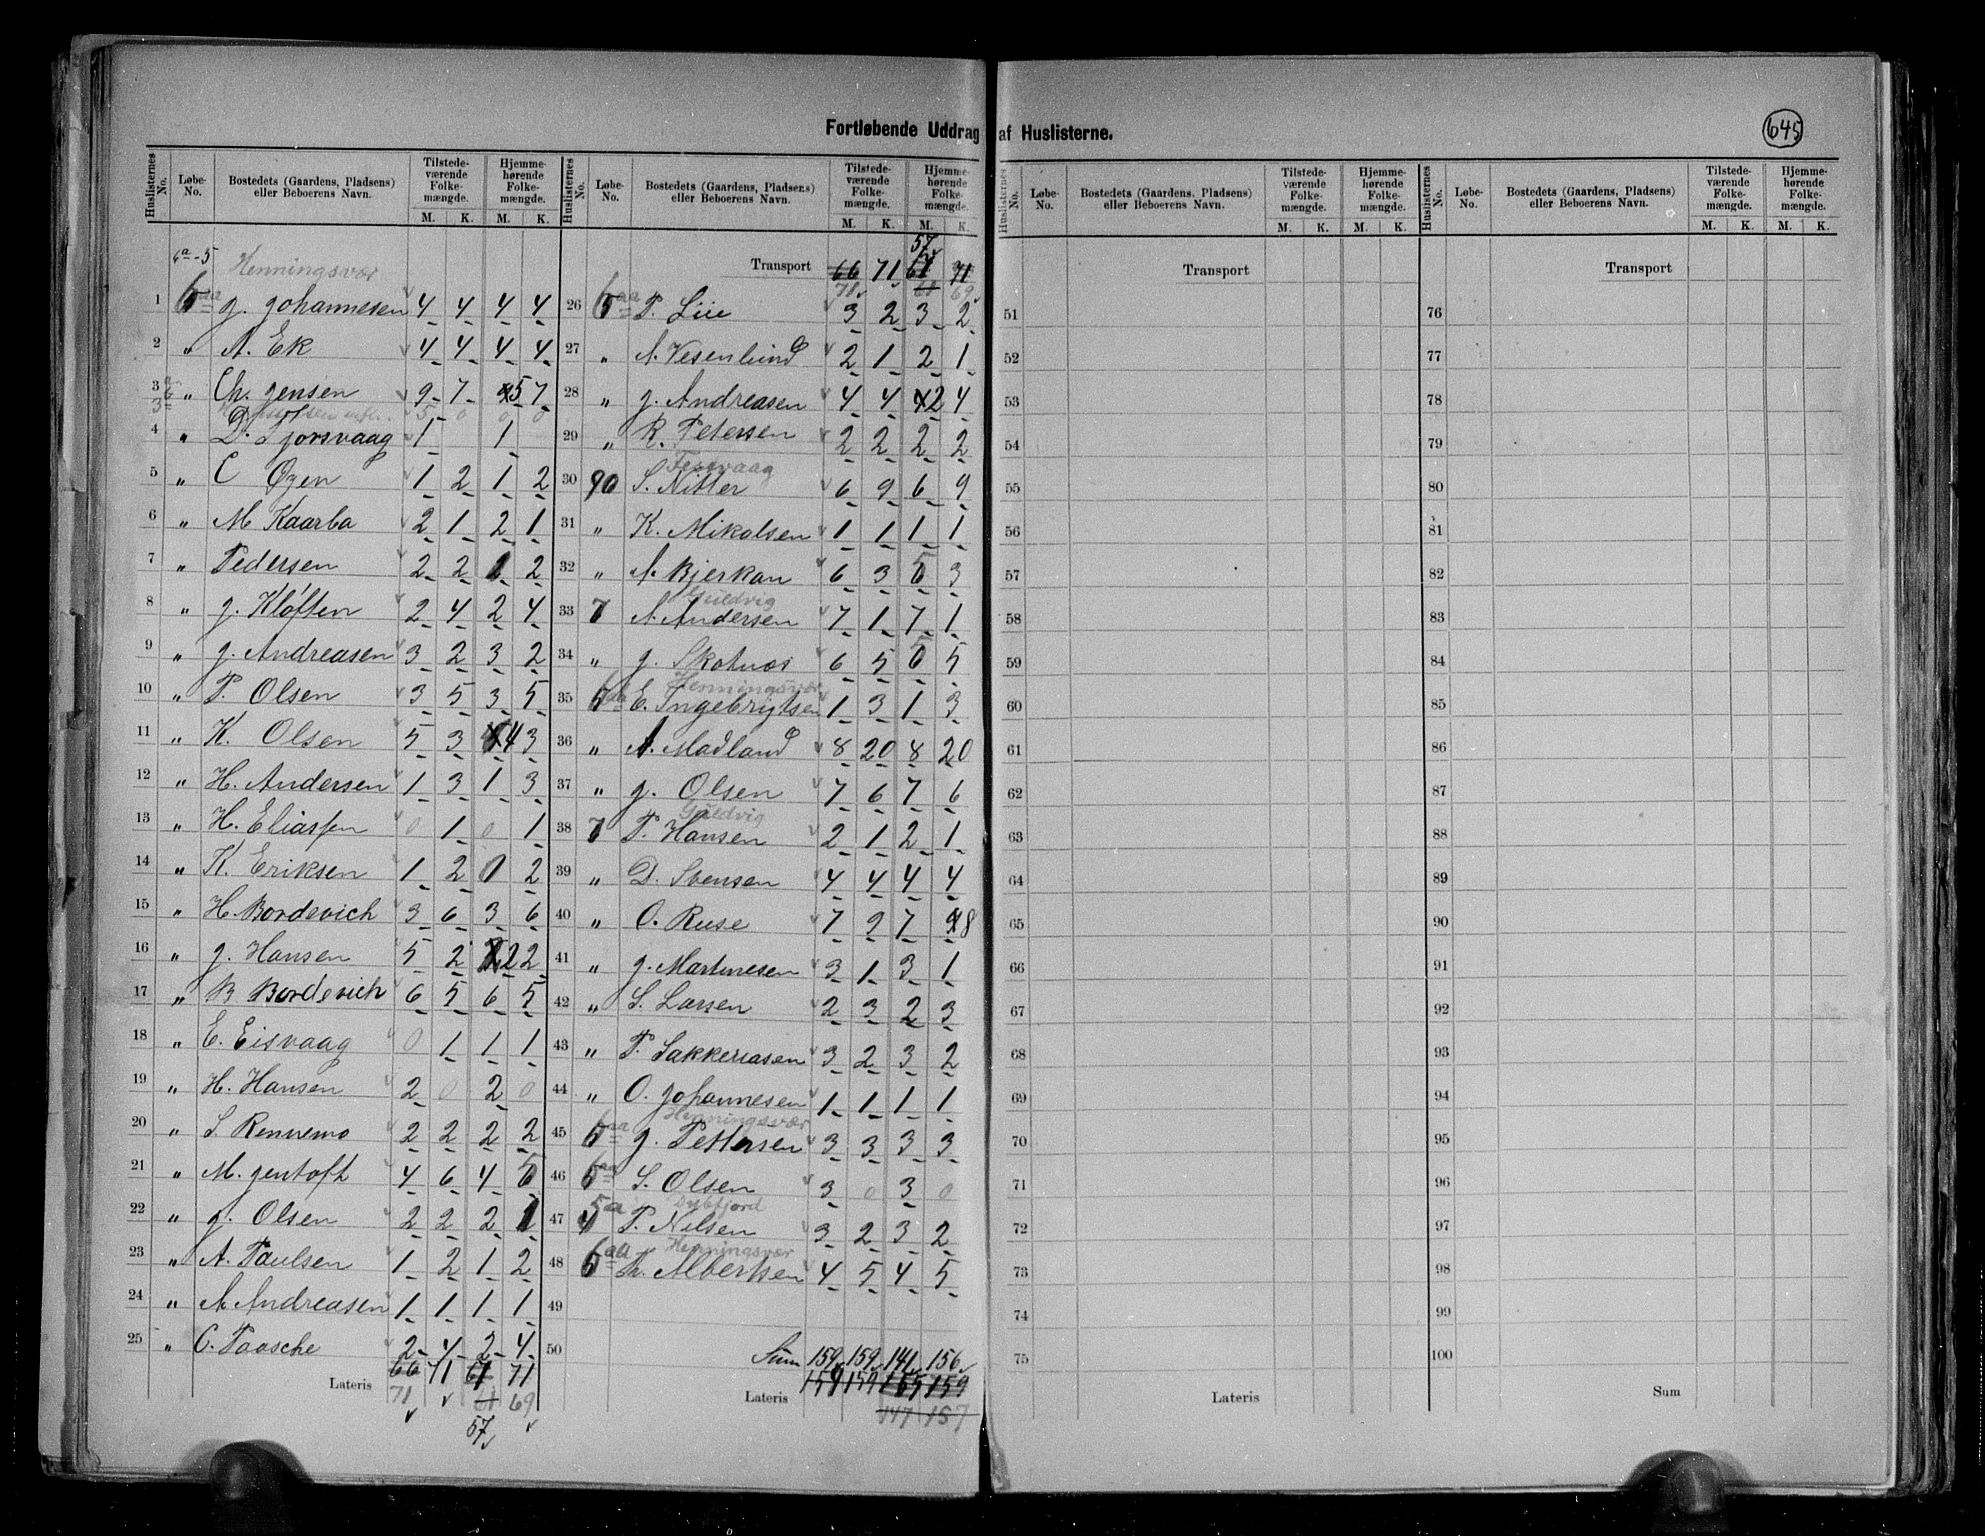 Fortløbende Uddrag af Huslisterne.
645
Huslisternes No. Løbe-No. Bostedets (Gaardens, Pladsens) eller Beboerens Navn. Tilstedeværende Folkemængde. M. K. Hjemmehørende Folkemængde. M. K.
6a-5 Henningsvær
1 6aa J. Johannesen 4 4 4 4
2 " A. Ek 4 4 4 4
3 " Chr. Jensen 9 7 5 7
4 " D. Fjorsvaag 1 1
5 " C Øzen 1 2 1 2
6 " M Kaarbø 2 1 2 1
7 " Pedersen 2 2 1 2
8 " J. Kløften 2 4 2 4
9 " J. Andreasen 3 2 3 2
10 " P. Olsen 3 5 3 5
11 " K. Olsen 5 3 4 3
12 " H. Andersen 1 3 1 3
13 " H. Eliassen 0 1 0 1
14 " K. Eriksen 1 2 0 2
15 " H. Bordevich 3 6 3 6
16 " J. Hansen 5 2 2 2
17 " B Bordevich 6 5 6 5
18 " E. Eisvaag 0 1 1 1
19 " H. Hansen 2 0 2 0
20 " S. Rennemo 2 2 2 2
21 " M. Jentoft 4 6 4 5
22 " J. Olsen 2 2 2 1
23 " A. Paulsen 1 2 1 2
24 " A Andreasen 1 1 1 1
25 " C. Paasche 2 4 2 4
66 71 61 71
Lateris 71 61 69
57
57
Transport 66 71 61 71
71 61 69
26 6aa P. Lie 3 2 3 2
27 " A. Vesenlund 2 1 2 1
28 " J. Andreasen 4 4 2 4
29 " R. Petersen 2 2 2 2
Festvaag
30 90 S. Nitter 6 9 6 9
31 " K. Mikalsen 1 1 1 1
32 " A. Bjerkan 6 3 5 3
Guldvig
33 7 A. Andersen 7 1 7 1
34 " J. Skotnæs 6 5 5 5
Henningsvær
35 6aa E. Ingebrigtsen 1 3 1 3
36 " A. Madland 8 20 8 20
37 " J. Olsen 7 6 7 6
Guldvig
38 7 P. Hansen 2 1 2 1
39 " D. Svensen 4 4 4 4
40 " O. Ruse 7 9 7 8
41 " J. Martinesen 3 1 3 1
42 " S. Larsen 2 3 2 3
43 " P. Sakkeriasen 3 2 3 2
44 " O. Johannesen 1 1 1 1
Henningsvær
45 6aa J. Pettersen 3 3 3 3
46 6aa S. Olsen 3 0 3 0
Dybfjord
47 5a P. Nilsen 3 2 3 2
Henningsvær
48 6aa Albertsen 4 5 4 5
49
50 Sum 159 159 141 156
Lateris 159 159 155 159
147 157
Huslisternes No. Løbe-No. Bostedets (Gaardens, Pladsens) eller Beboerens Navn. Tilstedeværende Folkemængde. M. K. Hjemmehørende Folkemængde. M. K.
Transport
51
52
53
54
55
56
57
58
59
60
61
62
63
64
65
66
67
68
69
70
71
72
73
74
75
Lateris
Huslisternes No. Løbe-No. Bostedets (Gaardens, Pladsens) eller Beboerens Navn. Tilstedeværende Folkemængde. M. K. Hjemmehørende Folkemængde. M. K.
Transport
76
77
78
79
80
81
82
83
84
85
86
87
88
89
90
91
92
93
94
95
96
97
98
99
100
Sum